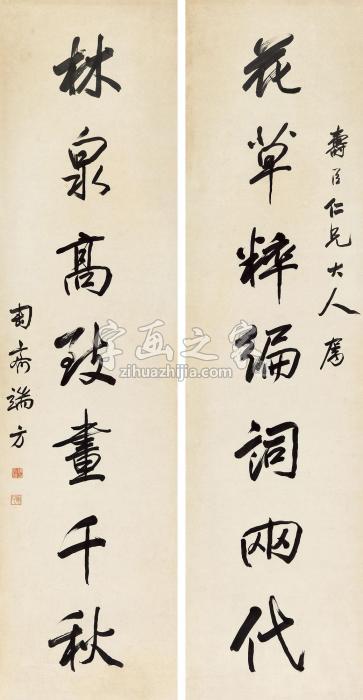 壽臣仁兄大人屬
花草粹編詞兩代
林泉高致畫千秋
匋齋端方
字画之家
zihuazhijia.com